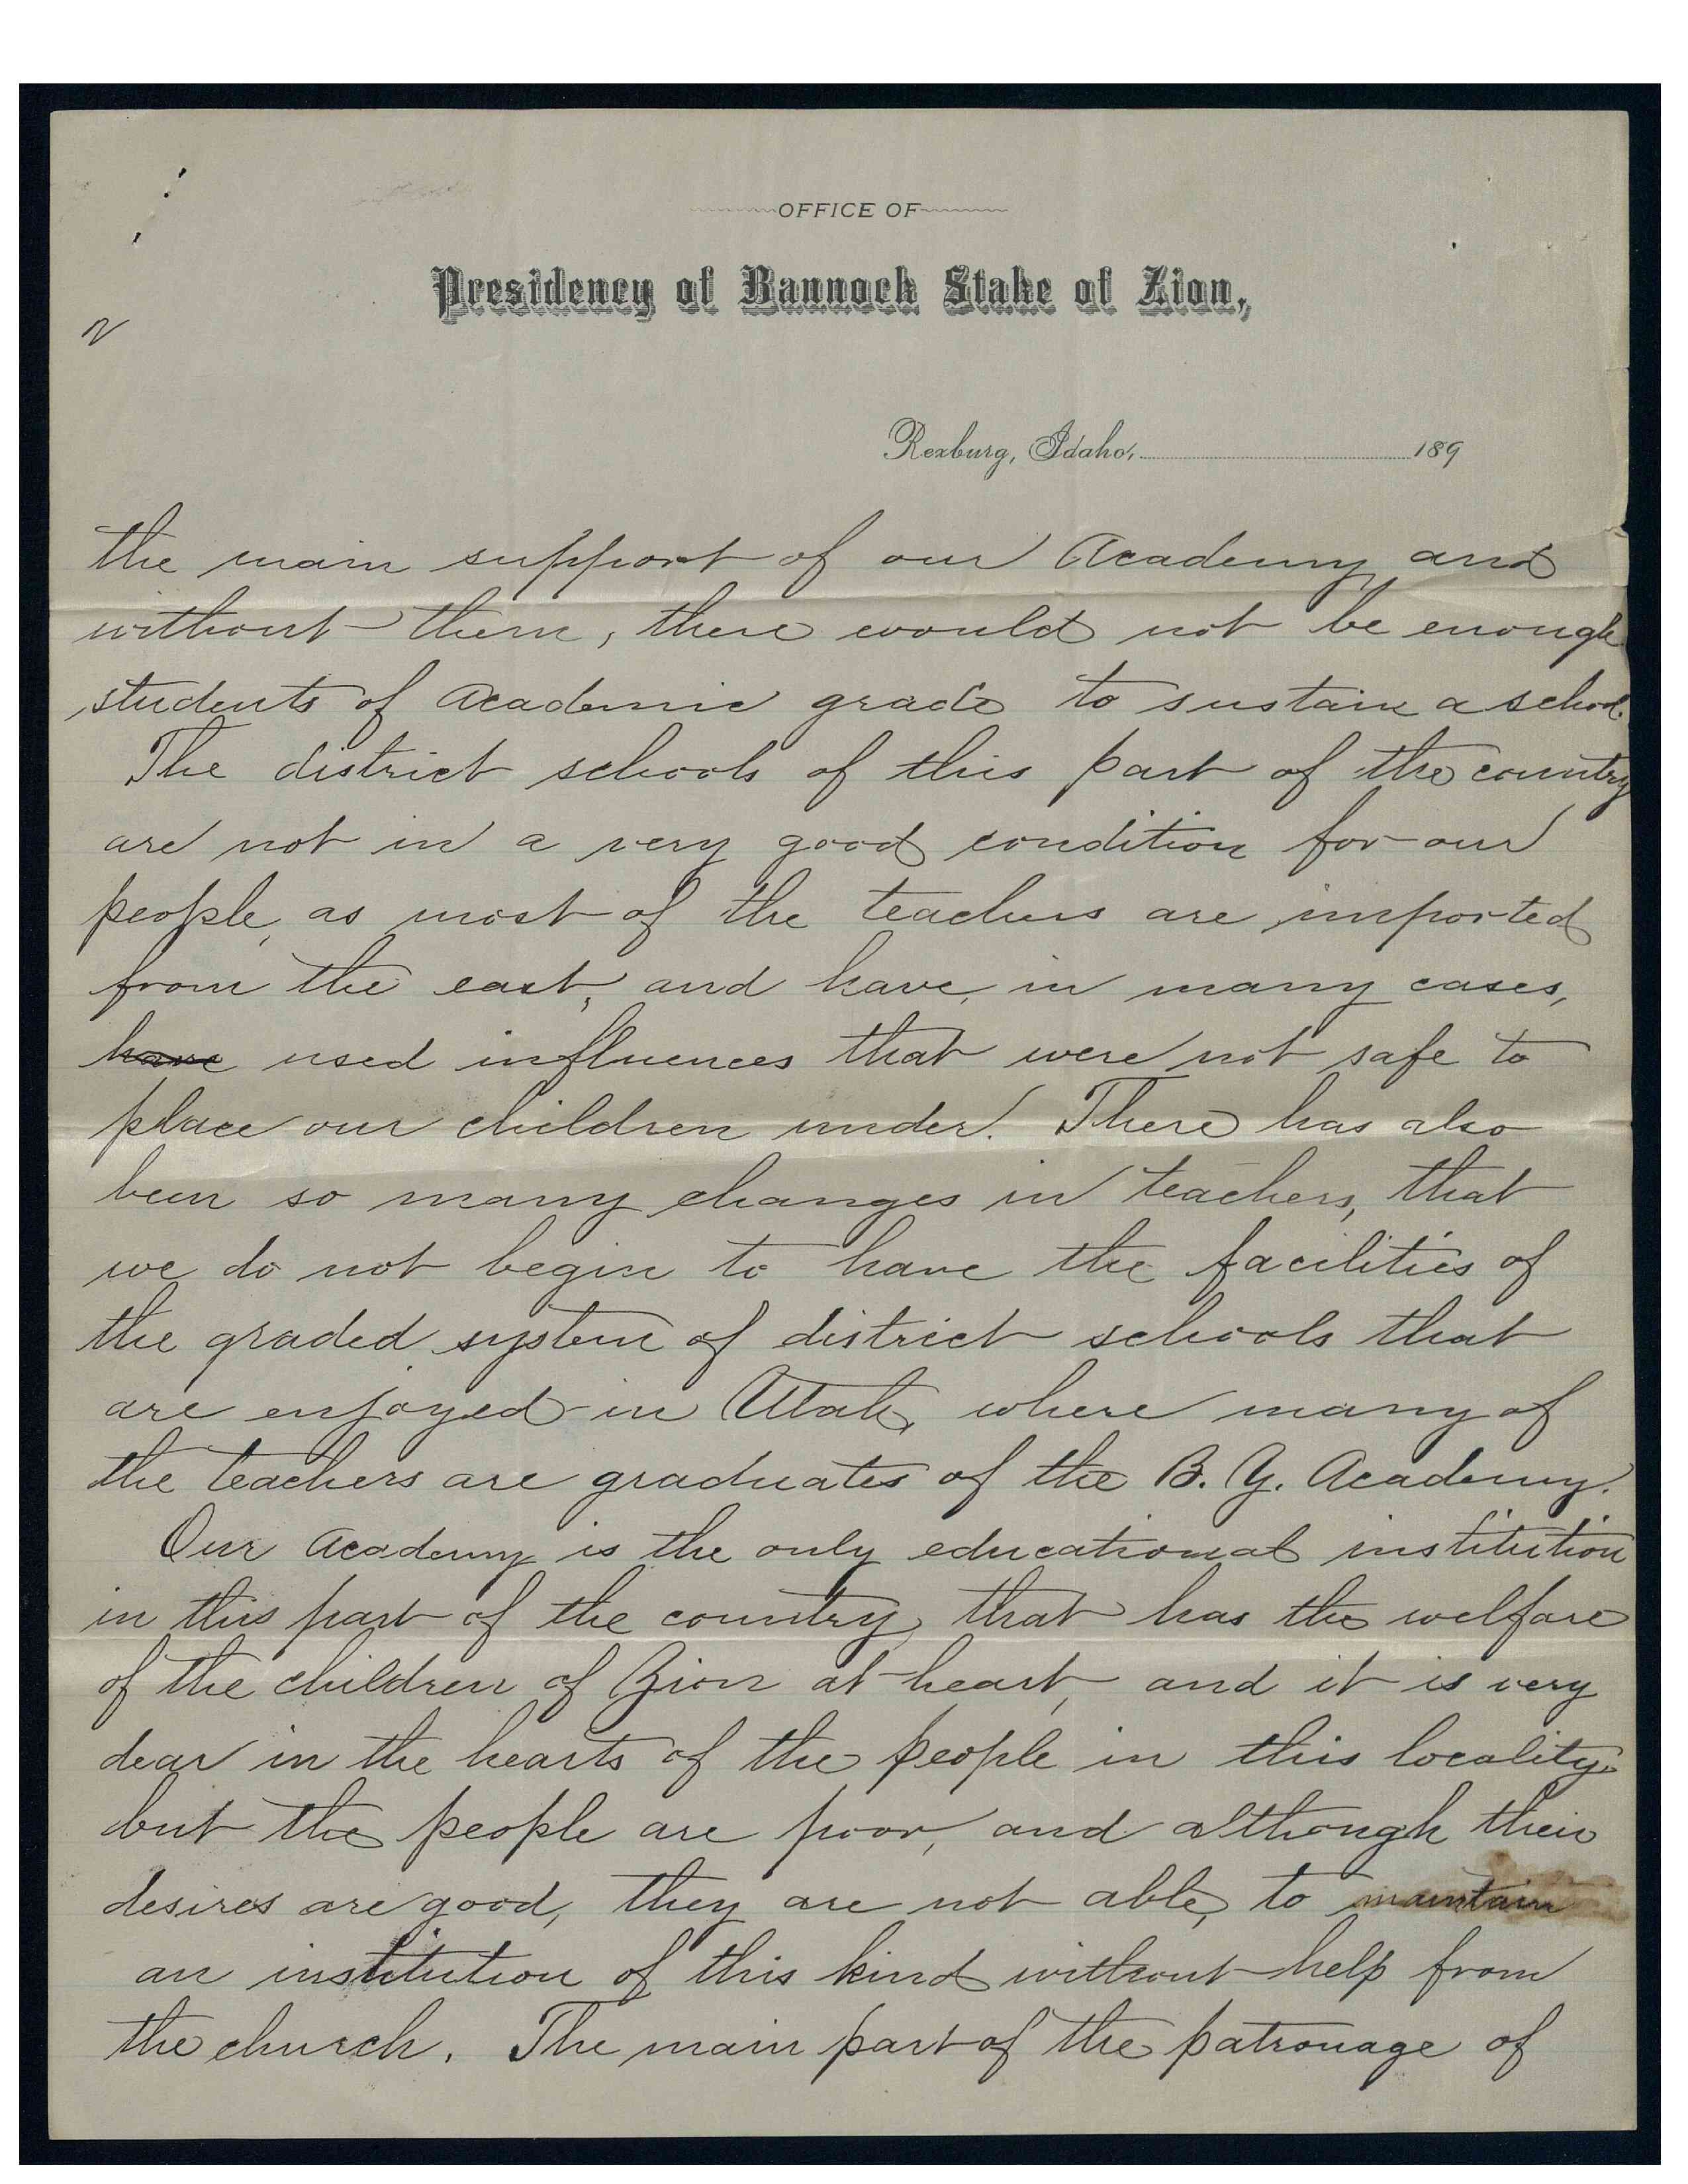 OFFICE OF
Presidency of Bannock Stake of Zion,
2
Rexburg, Idaho, 189
the main support of our Academy and
without them, there would not be enough
students of Academic grade to sustain a school.
The district schools of this part of the country
are not in a very good condition for our
people, as most of the teachers are imported
from the east, and have, in many cases,
have used influences that were not safe to
place our children under. There has also
been so many changes in teachers, that
we do not begin to have the facilities of
the graded system of district schools that
are enjoyed in Utah, where many of
the teachers are graduates of the B. Y. Academy.
Our Academy is the only educational institution
in this part of the country, that has the welfare
of the children of Zion at heart, and it is very
dear in the hearts of the people in this locality.
but the people are poor, and although their
desires are good, they are not able, to maintain
an institution of this kind without help from
the church. The main part of the patronage of